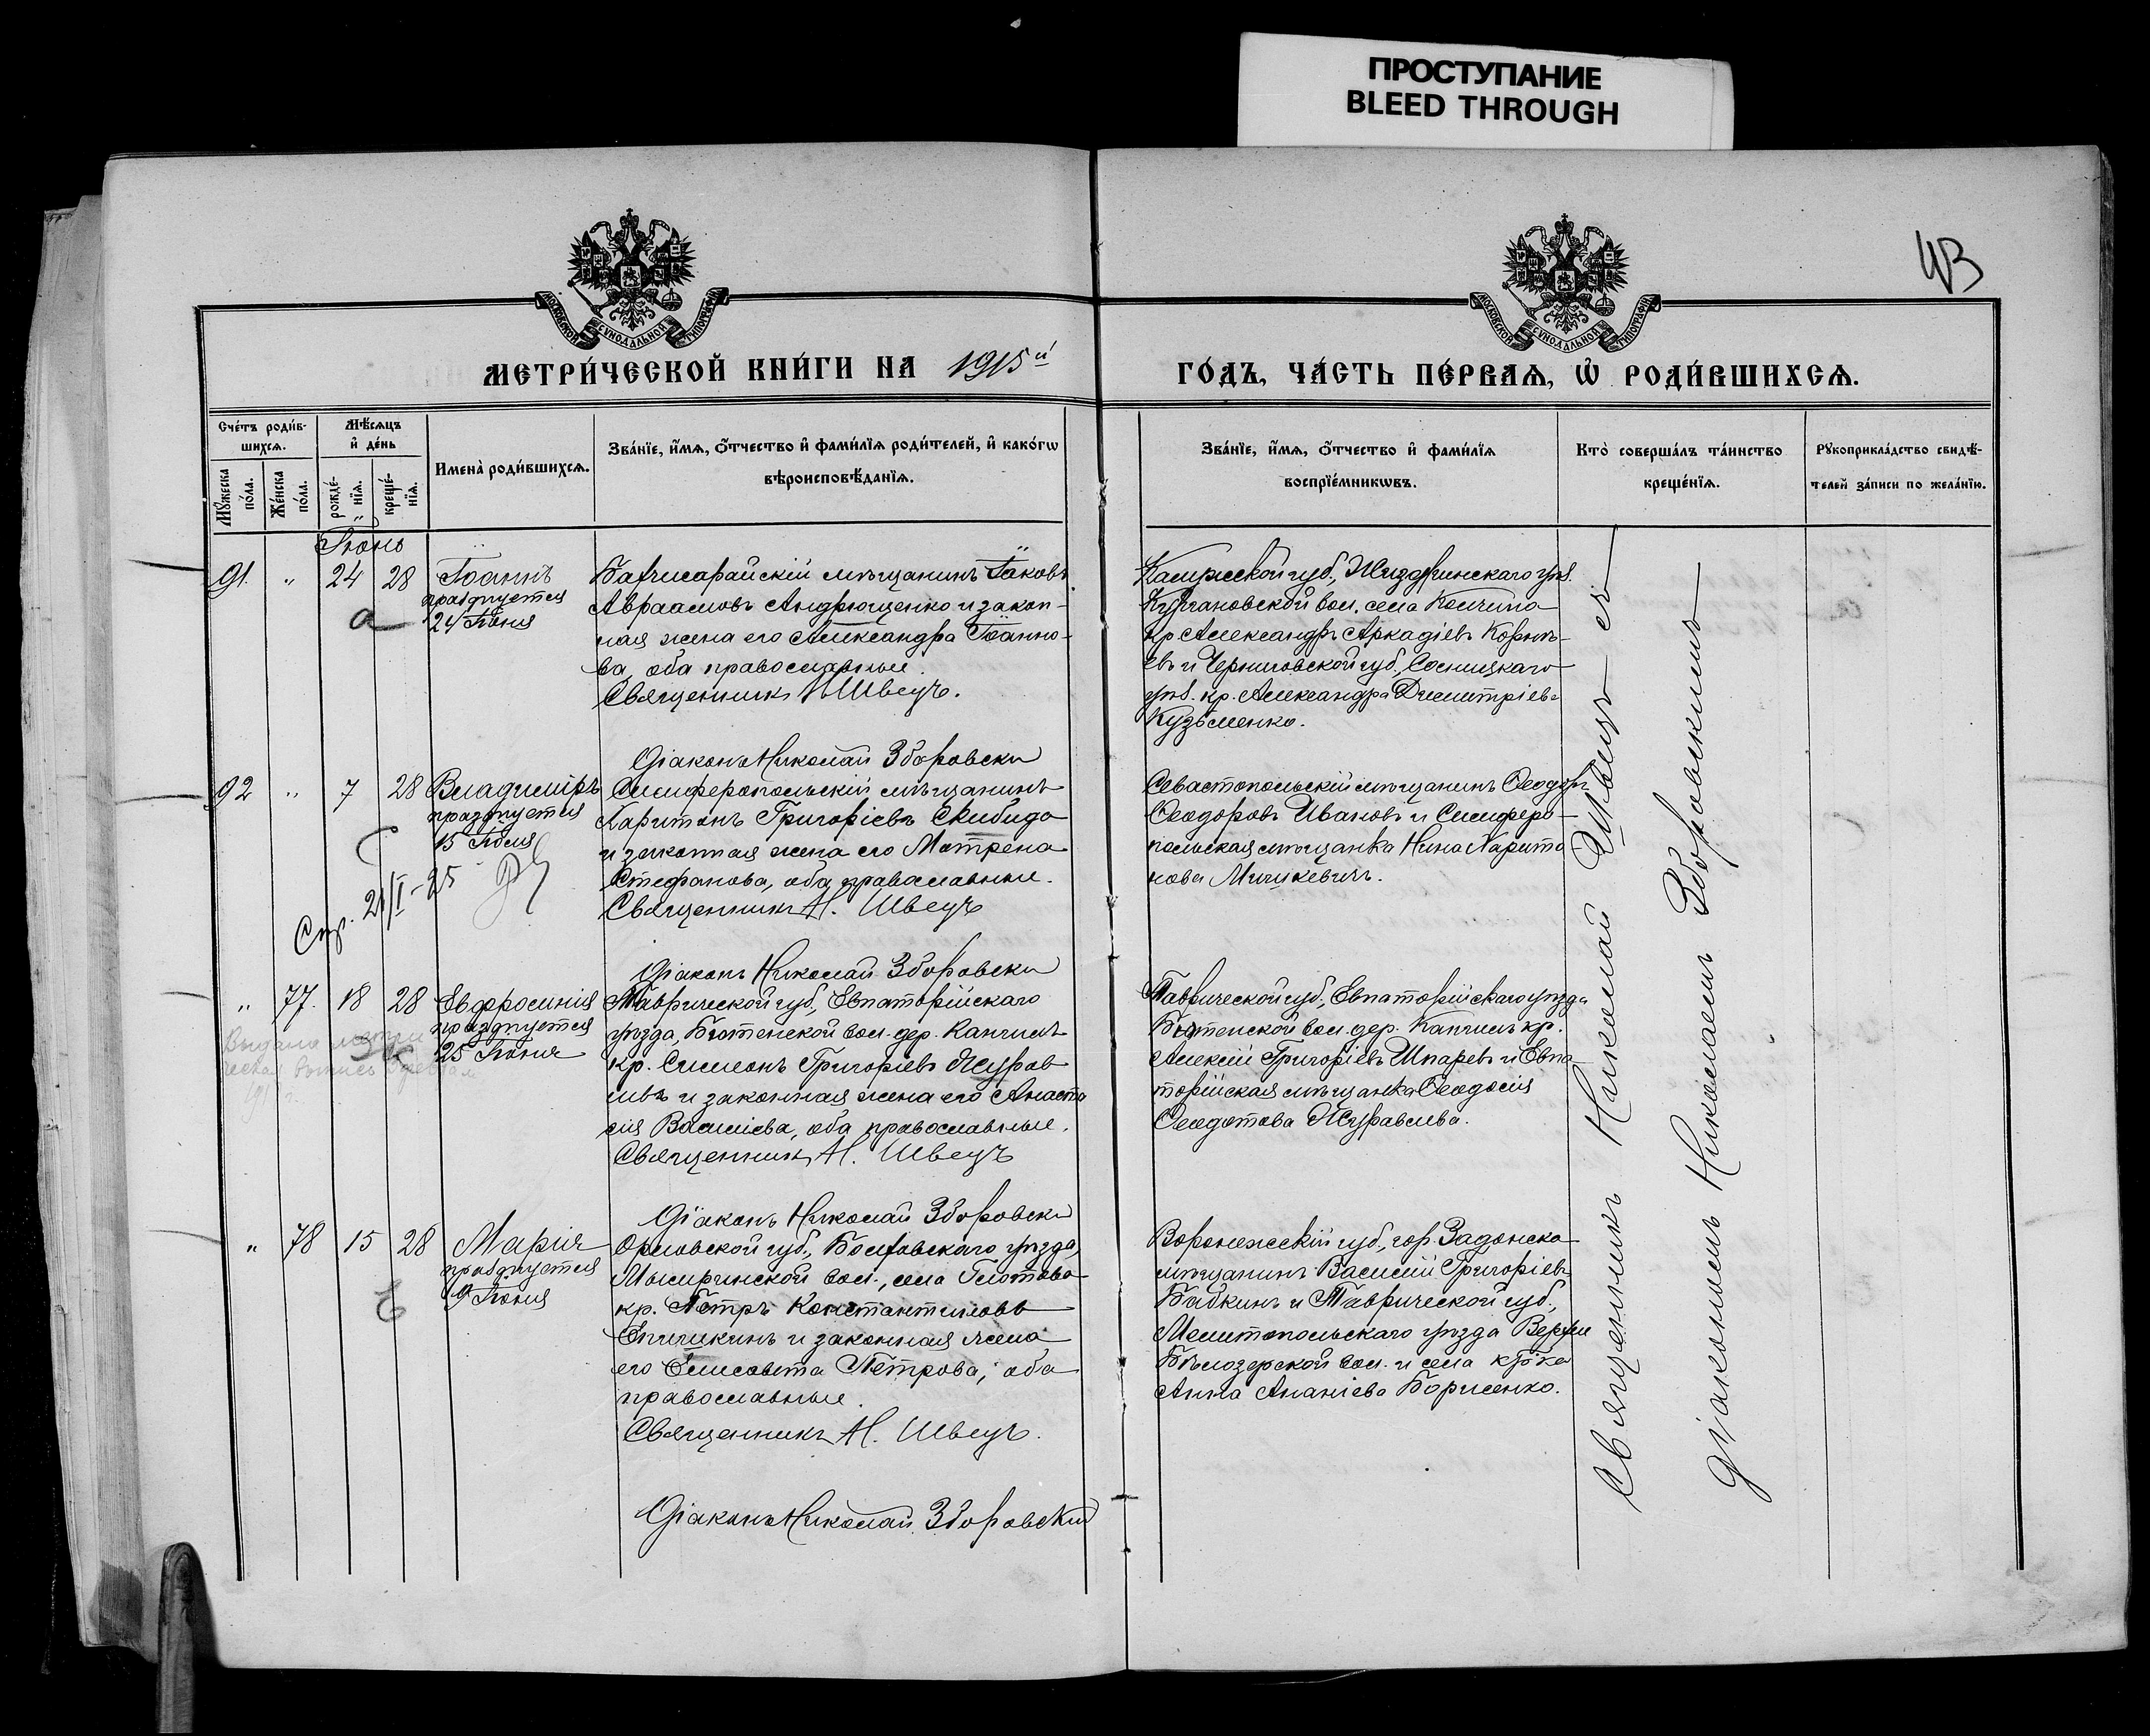 ПРОСТУПАНИЕ
BLEED THROUGH
43
МОСКОВСКОЙ СѴНОДАЛЬНОЙ ТИПОГРАФІИ
МОСКОВСКОЙ СѴНОДАЛЬНОЙ ТИПОГРАФІИ
МЕТРИ́ЧЕСКОЙ КНИ́ГИ НА 1915й
ГО́ДЪ, ЧА́СТЬ ПЕ́РВАѦ, Ѡ҆ РОДИ́ВШИХСѦ.
Сче́тъ роди́в-
шихсѧ.
Мꙋ́жеска
по́ла.
Же́нска
по́ла.
Мѣ́сѧцъ
и҆ де́нь
рожде́-
нїѧ.
креще́-
нїѧ.
Имена̀ роди́вшихсѧ.
Зва́нїе, и҆́мѧ, ѻ҆́тчество и҆ фами́лїѧ роди́телей, и҆ како́гѡ
вѣроисповѣ́данїѧ.
Зва́нїе, и҆́мѧ, ѻ҆́тчество и҆ фами́лїѧ
воспрїе́мникѡвъ.
Кто̀ соверша́лъ та́инство
креще́нїѧ.
Рꙋкоприкла́дство свидѣ́-
телей за́писи по жела́нїю.
Іюнь
91. " 24 28 Іоаннъ
празднуется
24 Іюня
а
Бахчисарайскій мѣщанинъ Іаковъ
Авраамовъ Андрющенко и закон-
ная жена его Александра Іоанно-
ва, оба православные.
Священникъ Н. Швецъ.
Діаконъ Николай Зборовски
Калужской губ., Жиздринскаго уѣз.
вол. села
кр. Александръ Аркадіевъ Корнѣ-
евъ и Черниговской губ., Сосницкаго
уѣз. кр. Александра Димитріева
Кузьменко.
92 " 7 28 Владиміръ
празднуется
15 Іюля
Спр. 21/I-25
Симферопольскій мѣщанинъ
Харитонъ Григоріевъ Скибида
и законная жена его Матрена
Стефанова, оба православные.
Священникъ Н. Швецъ
Діаконъ Николай Зборовски
Севастопольскій мѣщанинъ Ѳеодоръ
Ѳеодоровъ Ивановъ и Симферо-
польская мѣщанка Нина Харито
нова Мицкевичъ.
" 77. 18 28 Евфросинія
празднуется
25 Іюня
Ж
Выдана метри
ческая выпись
Таврической губ., Евпаторійскаго
уѣзда, Биютенской вол. дер. Канчилъ
кр. Симеонъ Григоріевъ Журав
левъ и законная жена его Анаста
сія Василіева, оба православные.
Священникъ Н. Швецъ
Діаконъ Николай Зборовски
Таврической губ., Евпаторійскаго уѣзда
Биютенской вол. дер. Канчилъ кр.
Алексій Григоріевъ Шпаревъ и Евпа-
торійская мѣщанка Ѳеодосія
Ѳеодотова Журавлева.
" 78 15 28 Марія
празднуется
9 Іюня
Е
Орловской губ., Болховскаго уѣзда,
вол., села Глотова
кр. Петръ Константиновъ
Епишкинъ и законная жена
его Елисавета Петрова, оба
православные.
Священникъ Н. Швецъ.
Діаконъ Николай Зборовскій
Воронежскій губ., гор. Задонска
мѣщанинъ Василій Григоріевъ
Бабкинъ и Таврической губ.,
Мелитопольскаго уѣзда Верхне
Бѣлозерской вол. и села кр-ка
Анна Ананіева Борисенко.
Священникъ Николай Швецъ съ
діакономъ Николаемъ Зборовскимъ